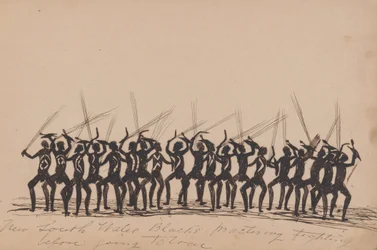 New South Wales Blacks Practising fighting
before going to war